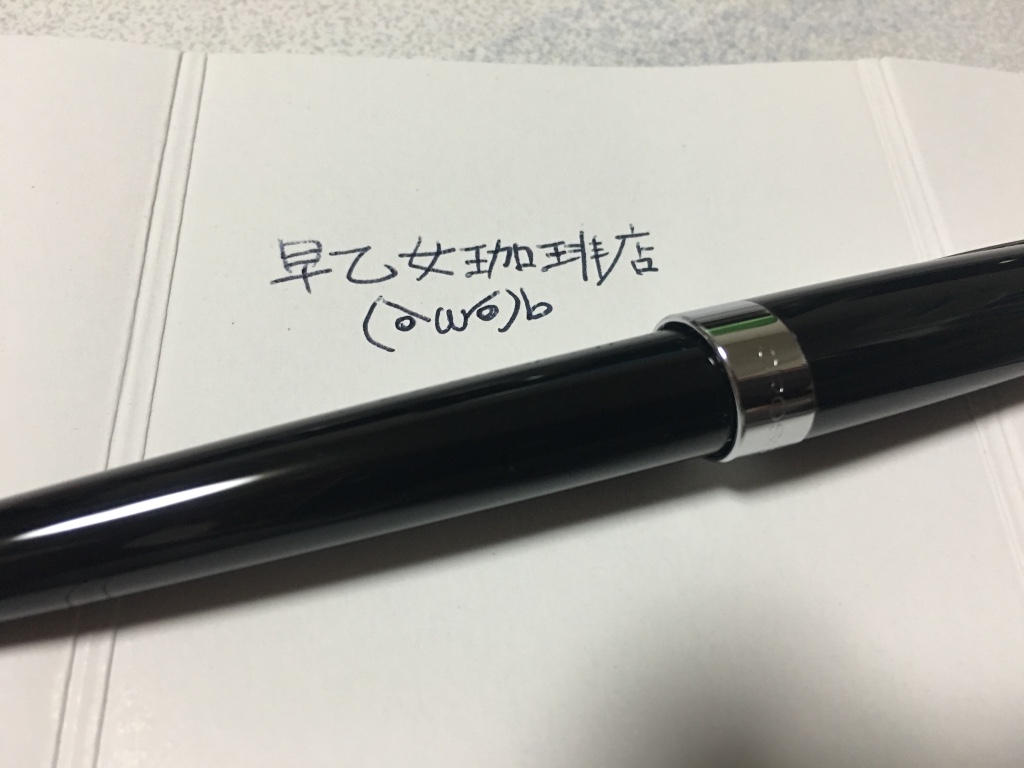 早乙女珈琲店
(òωó)b